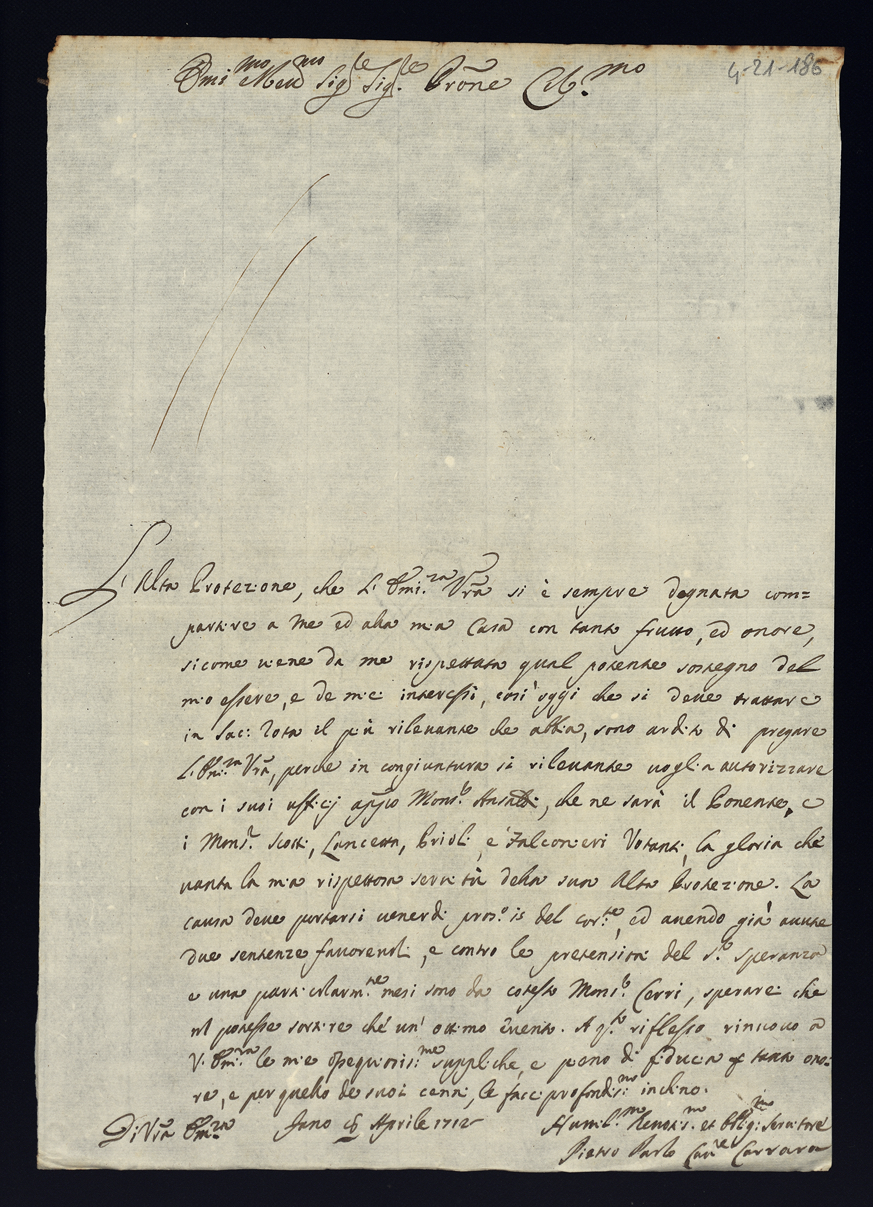 Emi:mo e Reud:mo Sig:re Sig:re Prōne Col:mo
4-21-186
L'Alta Protezione, che L'Emi:za Vrā si è sempre degnata com=
partire a me ed alla mia Casa con tanto frutto, ed onore,
sicome uiene da me rispettata qual potente sostegno del
mio essere, e de miei interessi, così oggi che si deue trattare
in Sac: Rota il più rileuante che abbia, sono ardito di pregare
L'Emi:za Vrā, perche in congiuntura sì rileuante uoglia autorizzare
con i suoi ufficij app̄o Mons:r Ansaldi, che ne sarà il Ponente, e
i Mons:ri Scotti, Lancetta, Prioli, e Falconieri Votanti, la gloria che
uanta la mia rispettosa seruitù della sua Alta Protezione. La
causa deue portarsi uenerdì pros:o 15 del cor:te, ed auendo già auute
due sentenze fauoreuoli, e contro le pretensioni del S:r Speranza
e una particolarm:te mesi sono da cotesto Mons:r Cerri, sperarei che
nō potesse sortire che un' ottimo euento. A q:to riflesso rinuouo a
V. Emi:za le mie ossequiosissi:me suppliche, e pieno di fiducia ꝑ tanto ono=
re, e per quello de suoi cenni, le faccio profondiss:mo inchino.
Di Vrā Em:za Fano 6 Aprile 1712
Humil:mo Deuotis:mo et Obblig:mo Seruitore
Pietro Paolo Cau:re Carrara